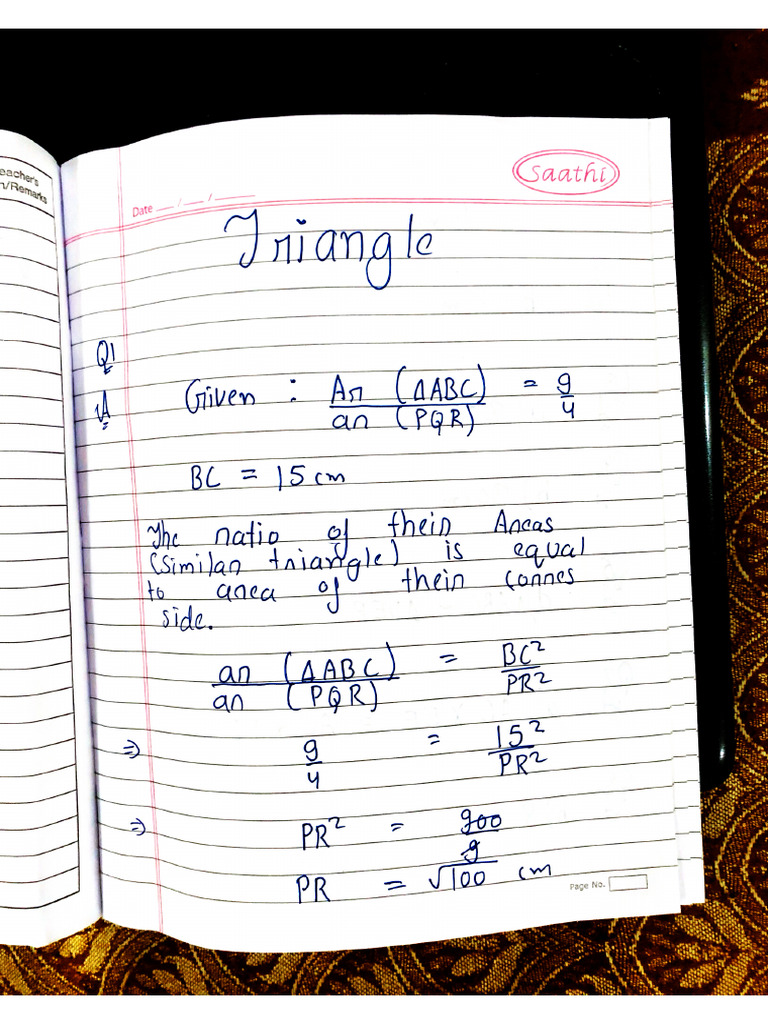 eacher's
n/Remarks
Saathi
Date __ / __ / ____
Triangle
Q1
A Given : Ar (△ABC) / ar (PQR) = 9/4
BC = 15 cm
The ratio of their Areas
(similar triangle) is equal
to area of their corres
side.
ar (△ABC) / ar (PQR) = BC² / PR²
⇒ 9/4 = 15² / PR²
⇒ PR² = 900 / 9
PR = √100 cm
Page No.